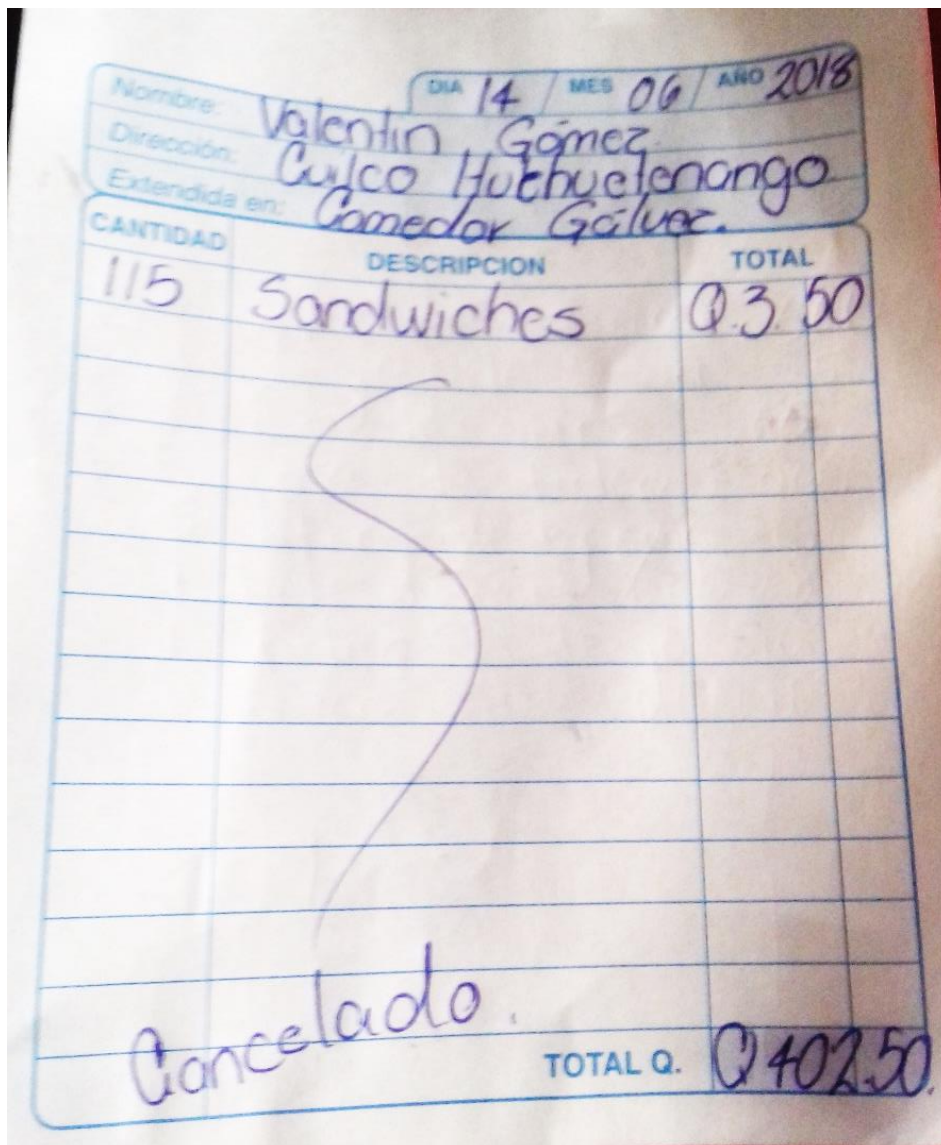 DIA 14 / MES 06 / AÑO 2018
Nombre: Valentin Gómez.
Dirección: Cuilco Huehuetenango
Extendida en: Comedor Gálvez.
CANTIDAD DESCRIPCION TOTAL
115 Sandwiches Q.3.50
Cancelado.
TOTAL Q. Q 402.50.